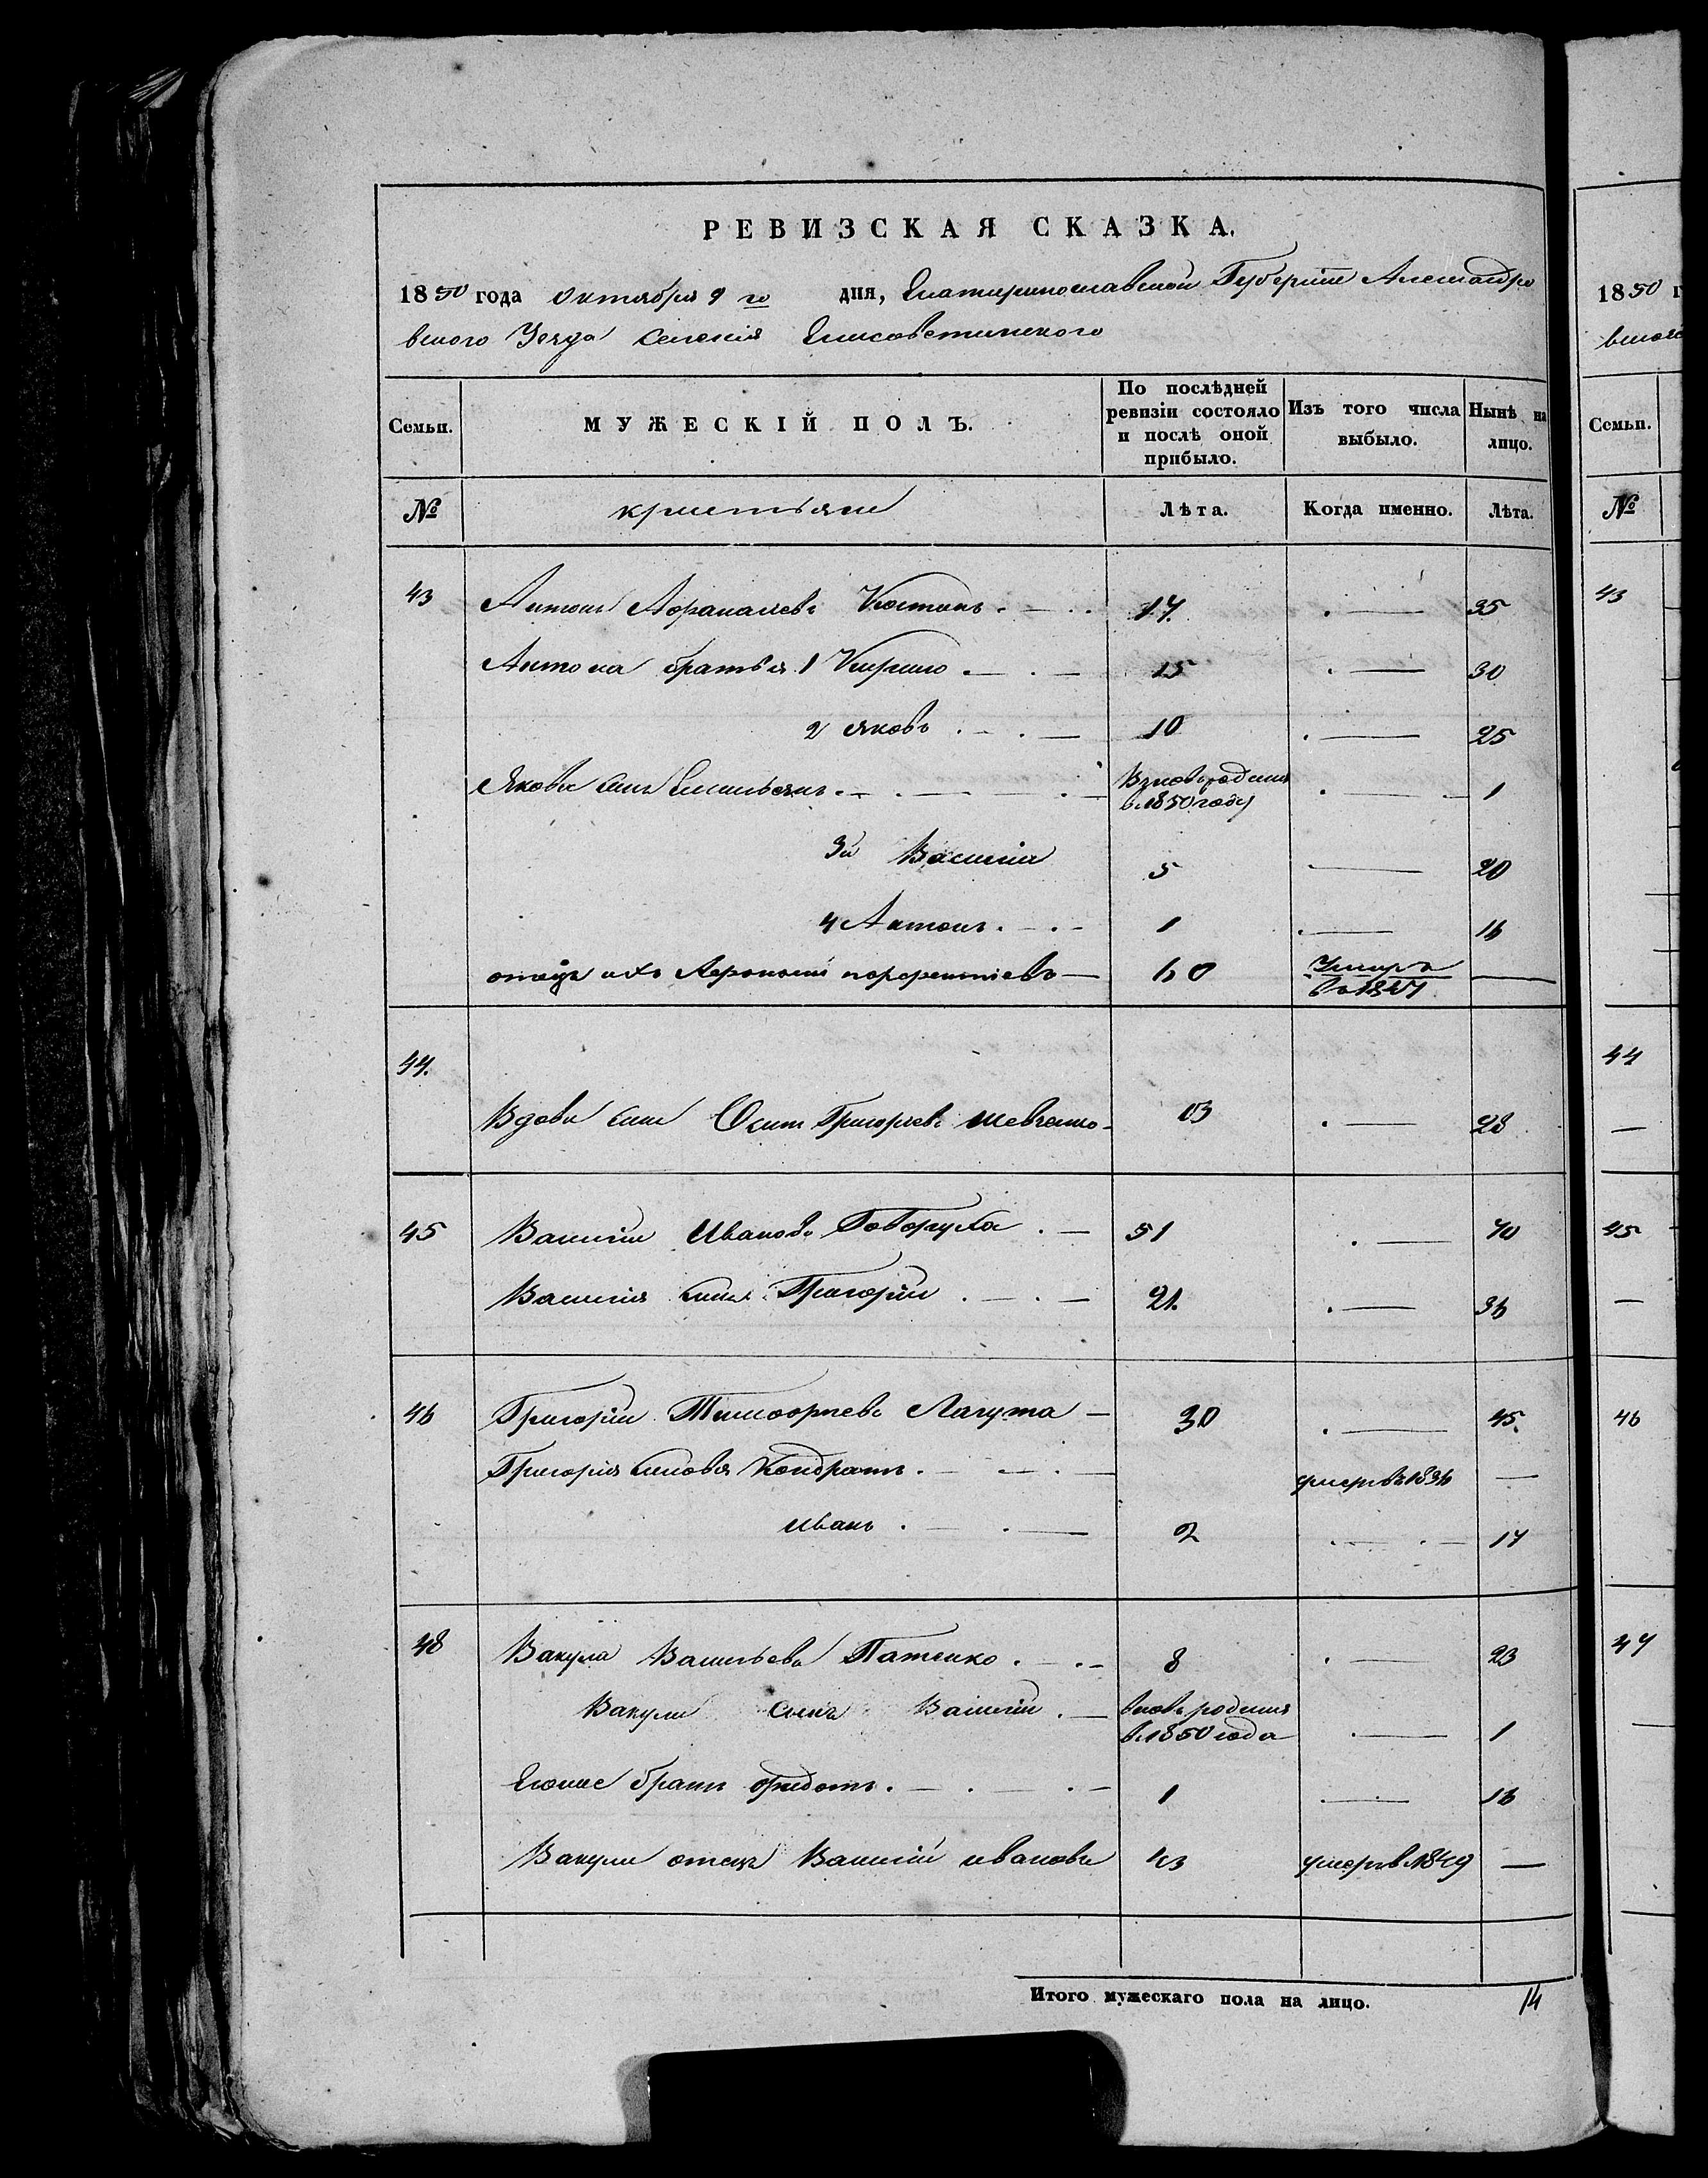 РЕВИЗСКАЯ СКАЗКА.
1850 года октября 9 го дня, Екатеринославской Губерніи Александро
вского Уезда селенія Елисаветинского
Семьи. МУЖЕСКІЙ ПОЛЪ. По послѣдней ревизіи состояло и послѣ оной прибыло. Изъ того числа выбыло. Нынѣ на лицо.
№ крестьяне Лѣта. Когда именно. Лѣта.
43 Антонъ Костинъ . — . . 17. . — 35
Антона братья 1 Кирило . — . — 15 . — 30
2 Яковъ . — . — 10 . — 25
Якова сынъ Емельянъ . — . — . — родился в 1850 году . — 1
3й Василій 5 — 20
4 Антонъ . — . — 1 . — 16
отецъ ихъ — 60 Умеръ —
44.
Вдовы сынъ Осипъ Григорьевъ Шевченко — 13 . — 28
45 Василій Ивановъ Говоруха . — 51 . — 70
Василія сынъ Григорій . — . — 21. . — 36
46 Григорій Лагута — 30 . — 45.
Григорія сыновья Кондратъ . — . — умеръ въ 1836 —
Иванъ . — . — 2 . — . — 17
48 Вакула Васильевъ Патенко . — . — 8 . — 23
Вакулы сынъ Василій . — вновь родился
в 1850 года . — 1
Егоже братъ Федотъ . — . — . — 1 . — 16
Вакулы отецъ Василій Ивановъ 43 умеръ в 1849 —
Итого мужескаго пола на лицо. 14
1850 г
Семьи.
№
43
44
—
45
—
46
47
—
—